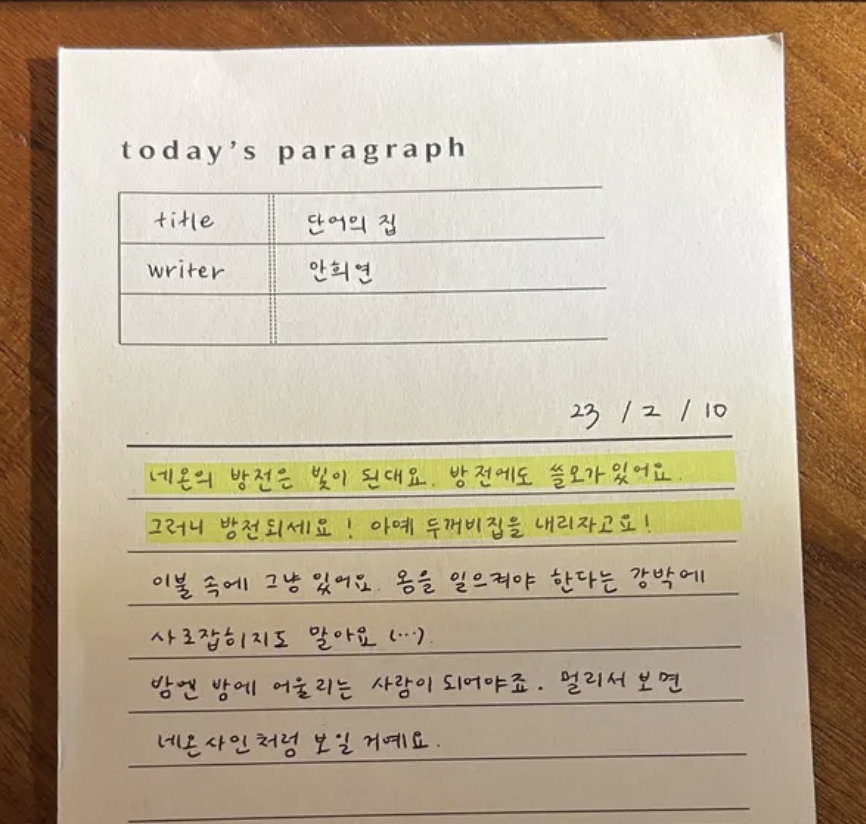 today's paragraph
title 단어의 집
writer 안희연
23 / 2 / 10
네온의 방전은 빛이 된대요. 방전에도 쓸모가 있어요.
그러니 방전되세요! 아예 두꺼비집을 내리자고요!
이불 속에 그냥 있어요. 몸을 일으켜야 한다는 강박에
사로잡히지도 말아요 (…).
밤엔 밤에 어울리는 사람이 되어야죠. 멀리서 보면
네온사인처럼 보일 거예요.